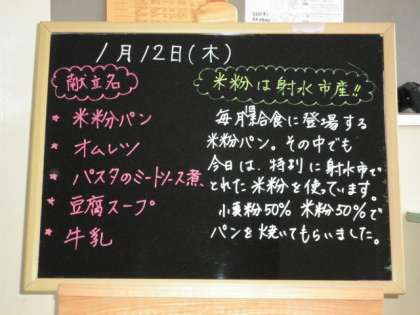 1月12日(木)
献立名
★ 米粉パン
★ オムレツ
★ パスタのミートソース煮
★ 豆腐スープ
★ 牛乳
米粉は射水市産!!
毎月給食に登場する
米粉パン。その中でも
今日は、特別に射水市で
とれた米粉を使っています。
小麦粉50% 米粉50%で
パンを焼いてもらいました。